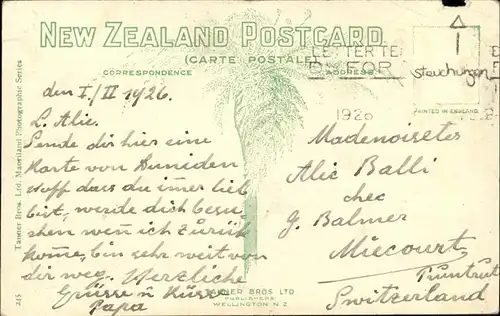 NEW ZEALAND POSTCARD
(CARTE POSTALE)
CORRESPONDENCE
ADDRESS
LETTER TE
FOR
1926
steuchungen
PRINTED IN ENGLAND
den I/II 1926.
L. Alic.
Sende dir hier eine
Karte von Duniden
hoff dass du imer lieb
bist, werde dich besu-
chen wen̄ ich zurük
kom̄e, bin sehr weit von
dir weg. Herzliche
Grüsse u Küsse
Papa
Madenoiseles
Alic Balli
chec
G. Balmer
Miecourt
Pruntrut
Switzerland
TANNER BROS LTD
PUBLISHERS
WELLINGTON N.Z
Tanner Bros. Ltd. Maoriland Photographic Series
245